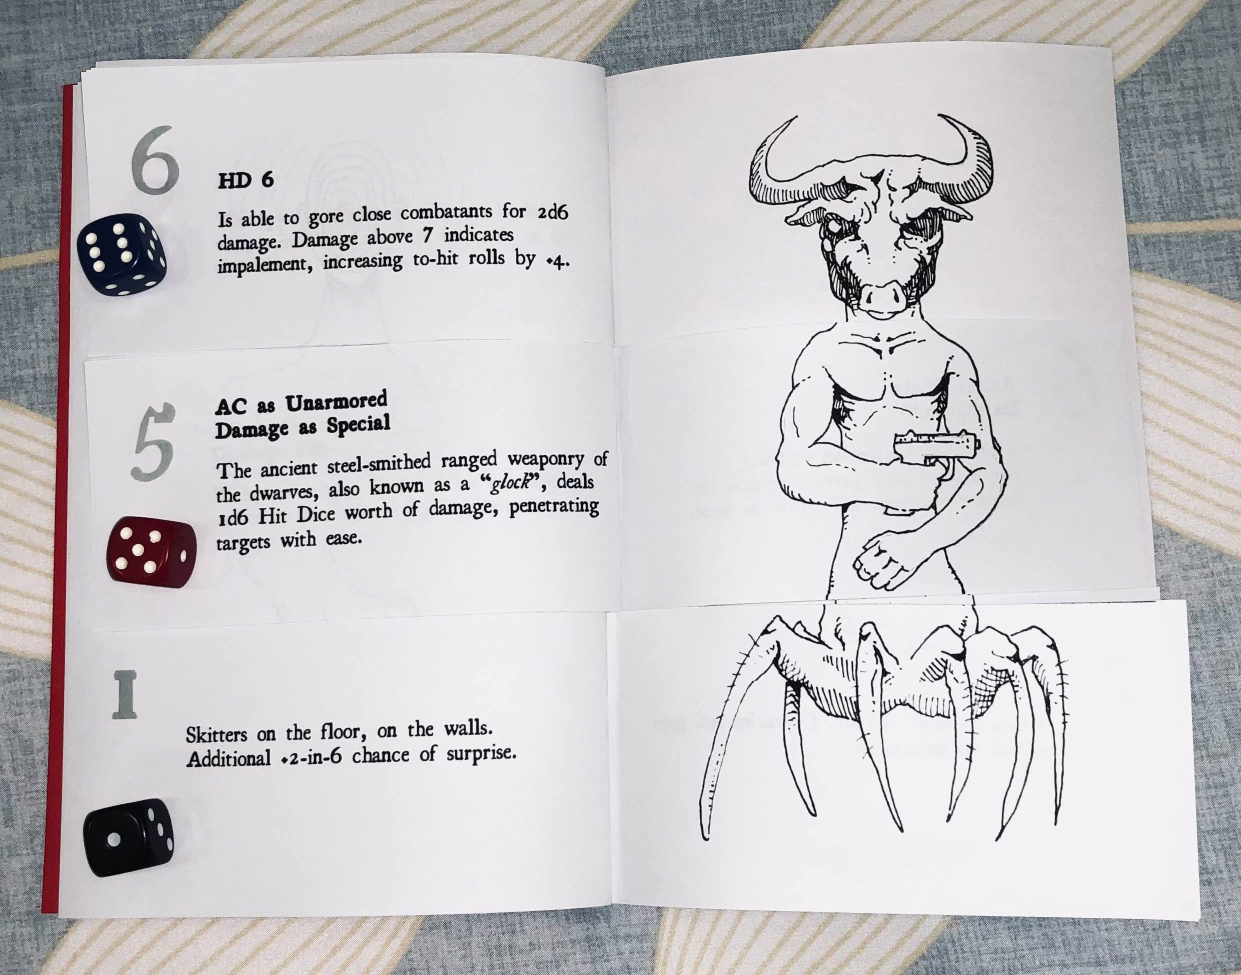 6
HD 6
Is able to gore close combatants for 2d6
damage. Damage above 7 indicates
impalement, increasing to-hit rolls by +4.
5
AC as Unarmored
Damage as Special
The ancient steel-smithed ranged weaponry of
the dwarves, also known as a “glock”, deals
1d6 Hit Dice worth of damage, penetrating
targets with ease.
1
Skitters on the floor, on the walls.
Additional +2-in-6 chance of surprise.